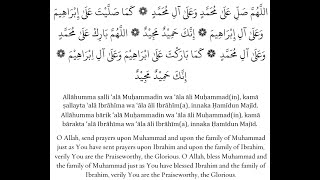 اللَّهُمَّ صَلِّ عَلَىٰ مُحَمَّدٍ وَعَلَىٰ آلِ مُحَمَّدٍ ۞ كَمَا صَلَّيْتَ عَلَىٰ إِبْرَاهِيمَ
وَعَلَىٰ آلِ إِبْرَاهِيمَ ۞ إِنَّكَ حَمِيدٌ مَجِيدٌ ۞ اللَّهُمَّ بَارِكْ عَلَىٰ مُحَمَّدٍ
وَعَلَىٰ آلِ مُحَمَّدٍ ۞ كَمَا بَارَكْتَ عَلَىٰ إِبْرَاهِيمَ وَعَلَىٰ آلِ إِبْرَاهِيمَ ۞
إِنَّكَ حَمِيدٌ مَجِيدٌ
Allāhumma salli 'alā Muḥammadin wa 'ala āli Muḥammad(in), kamā
ṣallayta 'alā Ibrāhīma wa 'ala āli Ibrāhīm(a), innaka Ḥamīdun Majīd.
Allāhumma bārik 'alā Muḥammadin wa 'ala āli Muḥammad(in), kamā
bārakta 'alā Ibrāhīma wa 'ala āli Ibrāhīm(a), innaka Ḥamīdun Majīd.
O Allah, send prayers upon Muhammad and upon the family of Muhammad
just as You have sent prayers upon Ibrahim and upon the family of Ibrahim,
verily You are the Praiseworthy, the Glorious. O Allah, bless Muhammad and
the family of Muhammad just as You have blessed Ibrahim and the family of
Ibrahim, verily You are the Praiseworthy, the Glorious.